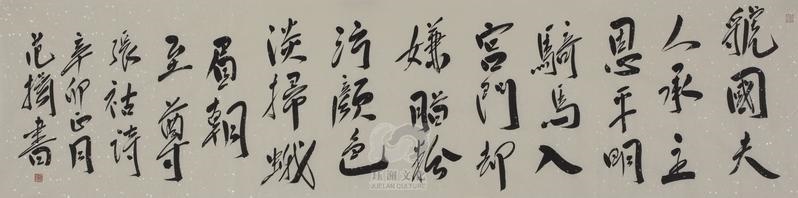 虢國夫
人承主
恩平明
騎馬入
宮門却
嫌脂粉
污顏色
淡掃蛾
眉朝
至尊
張祜詩
辛卯正月
范書
JUELAN CULTURE